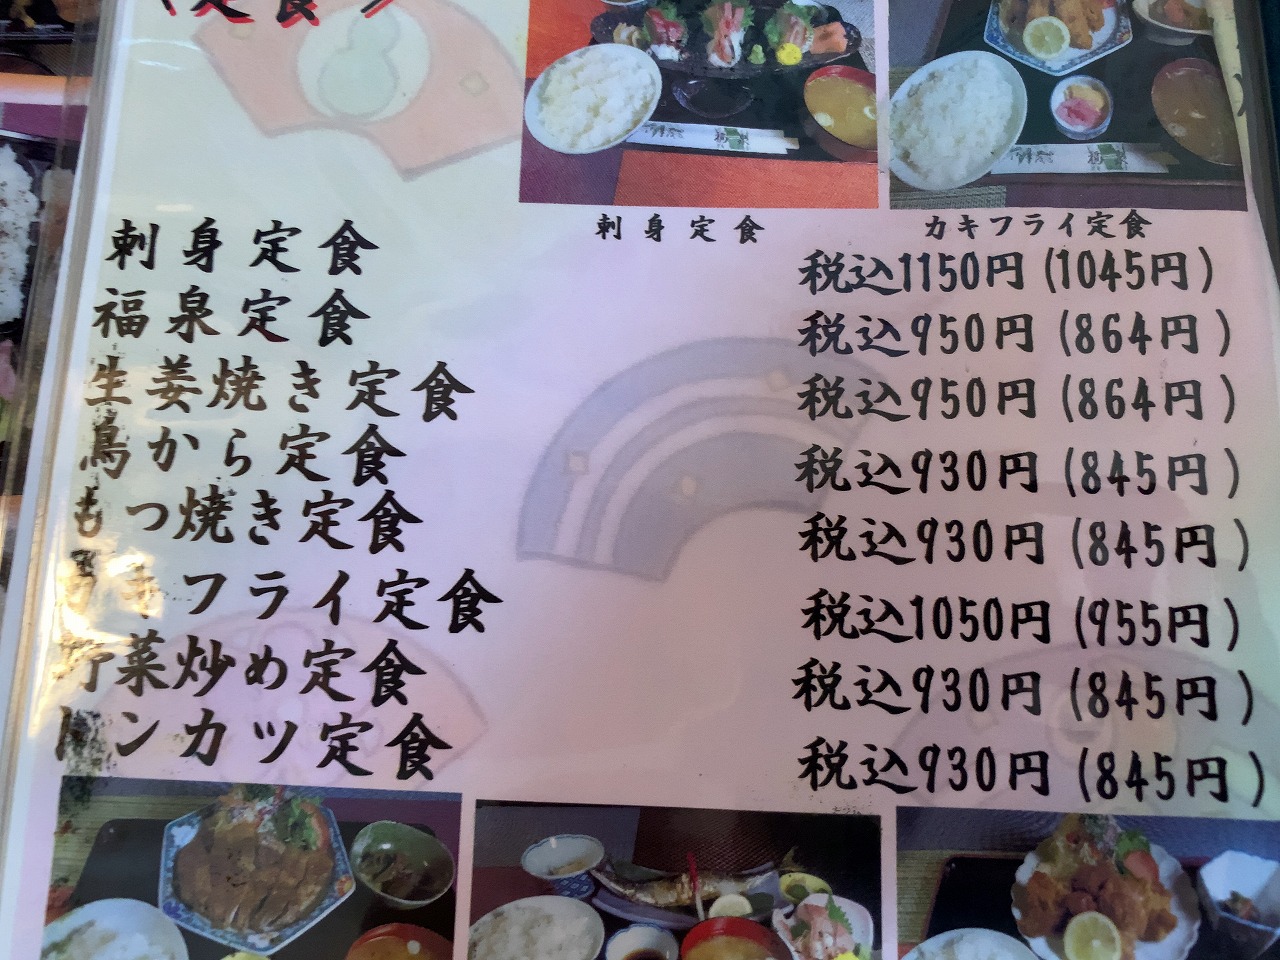 定食
刺身定食
カキフライ定食
刺身定食 税込1150円(1045円)
福泉定食 税込950円(864円)
生姜焼き定食 税込950円(864円)
鳥から定食 税込930円(845円)
もつ焼き定食 税込930円(845円)
フライ定食 税込1050円(955円)
野菜炒め定食 税込930円(845円)
トンカツ定食 税込930円(845円)